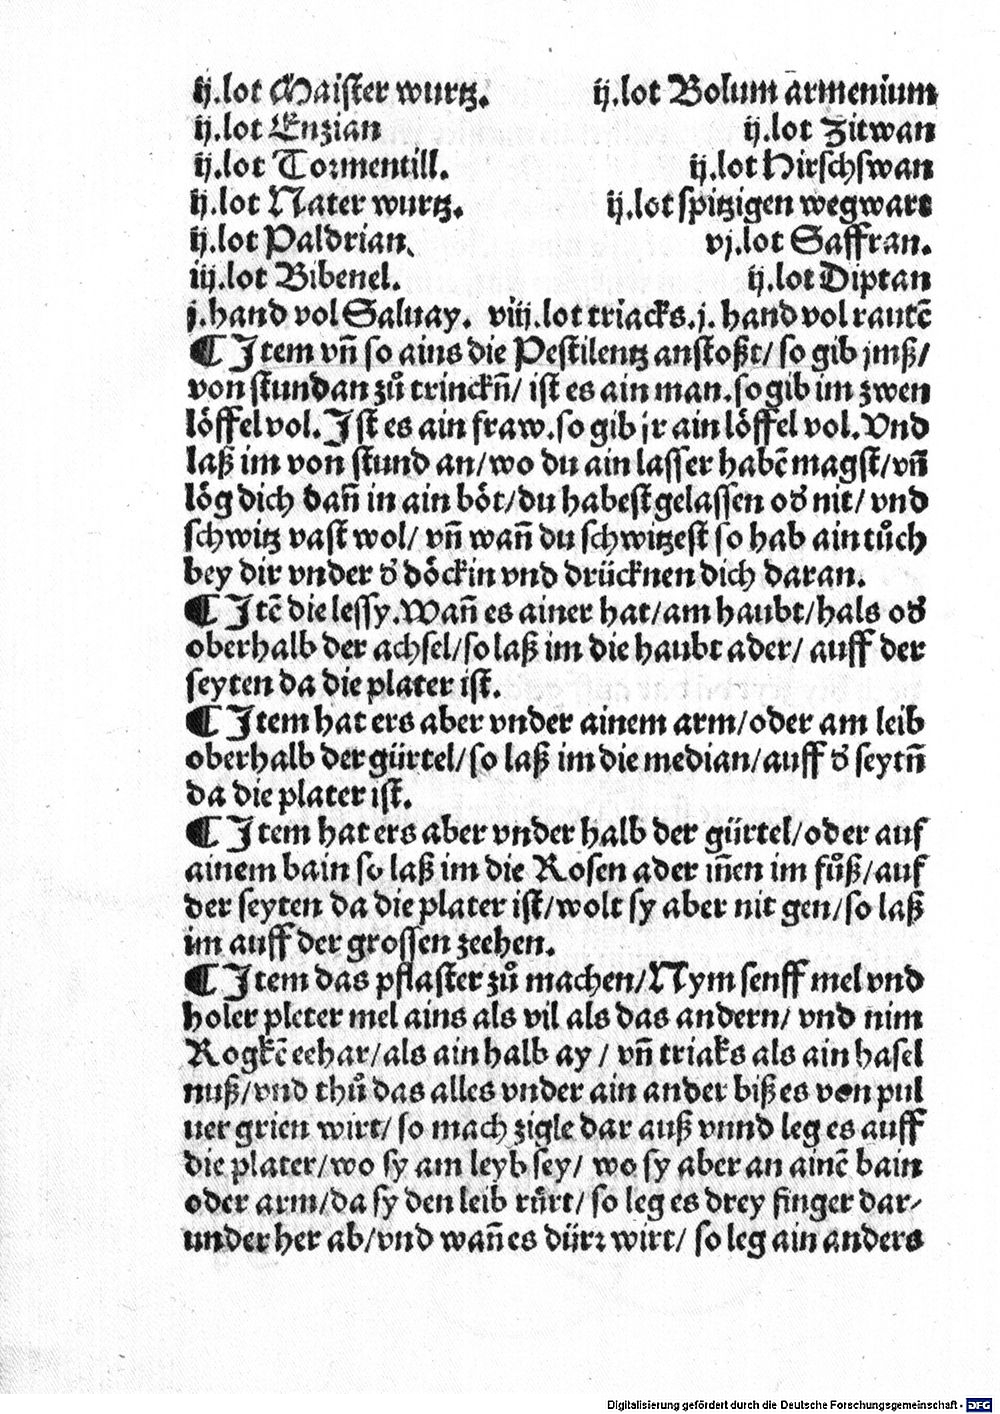 ij.lot Maister wurtz. ij.lot Bolum armenium
ij.lot Enzian ij.lot Zitwan
ij.lot Tormentill. ij.lot Hirschswan
ij.lot Nater wurtz. ij.lot spitzigen wegwart
ij.lot Paldrian. vj.lot Saffran.
iij.lot Bibenel. ij.lot Diptan
j.hand vol Saluay. viij.lot triacks.j. hand vol rautē
¶ Item vñ so ains die Pestilentz anstoßt/ so gib jmß/
von stundan zů trinckñ/ ist es ain man.so gib im zwen
löffel vol. Ist es ain fraw.so gib jr ain löffel vol. Vnd
laß im von stund an/wo du ain lasser habē magst/vñ
lög dich dañ in ain böt/du habest gelassen od' nit/ vnd
schwitz vast wol/ vñ wañ du schwitzest so hab ain tůch
bey dir vnder d' döckin vnd drücknen dich daran.
¶ Itē die lessy. Wañ es ainer hat/am haubt/hals od'
oberhalb der achsel/so laß im die haubt ader/ auff der
seyten da die plater ist.
¶ Item hat ers aber vnder ainem arm/oder am leib
oberhalb der gürtel/so laß im die median/auff d' seytñ
da die plater ist.
¶ Item hat ers aber vnder halb der gürtel/oder auf
ainem bain so laß im die Rosen ader iñen im fůß/auf
der seyten da die plater ist/wolt sy aber nit gen/so laß
im auff der grossen zeehen.
¶ Item das pflaster zů machen/Nym senff mel vnd
holer pleter mel ains als vil als das andern/ vnd nim
Rogkē eehar/als ain halb ay / vñ triaks als ain hasel
nuß/vnd thů das alles vnder ain ander biß es von pul
uer grien wirt/ so mach zigle dar auß vnnd leg es auff
die plater/wo sy am leyb sey/ wo sy aber an ainē bain
oder arm/da sy den leib růrt/ so leg es drey finger dar-
under her ab/vnd wañ es dürr wirt/ so leg ain anders
Digitalisierung gefördert durch die Deutsche Forschungsgemeinschaft - DFG